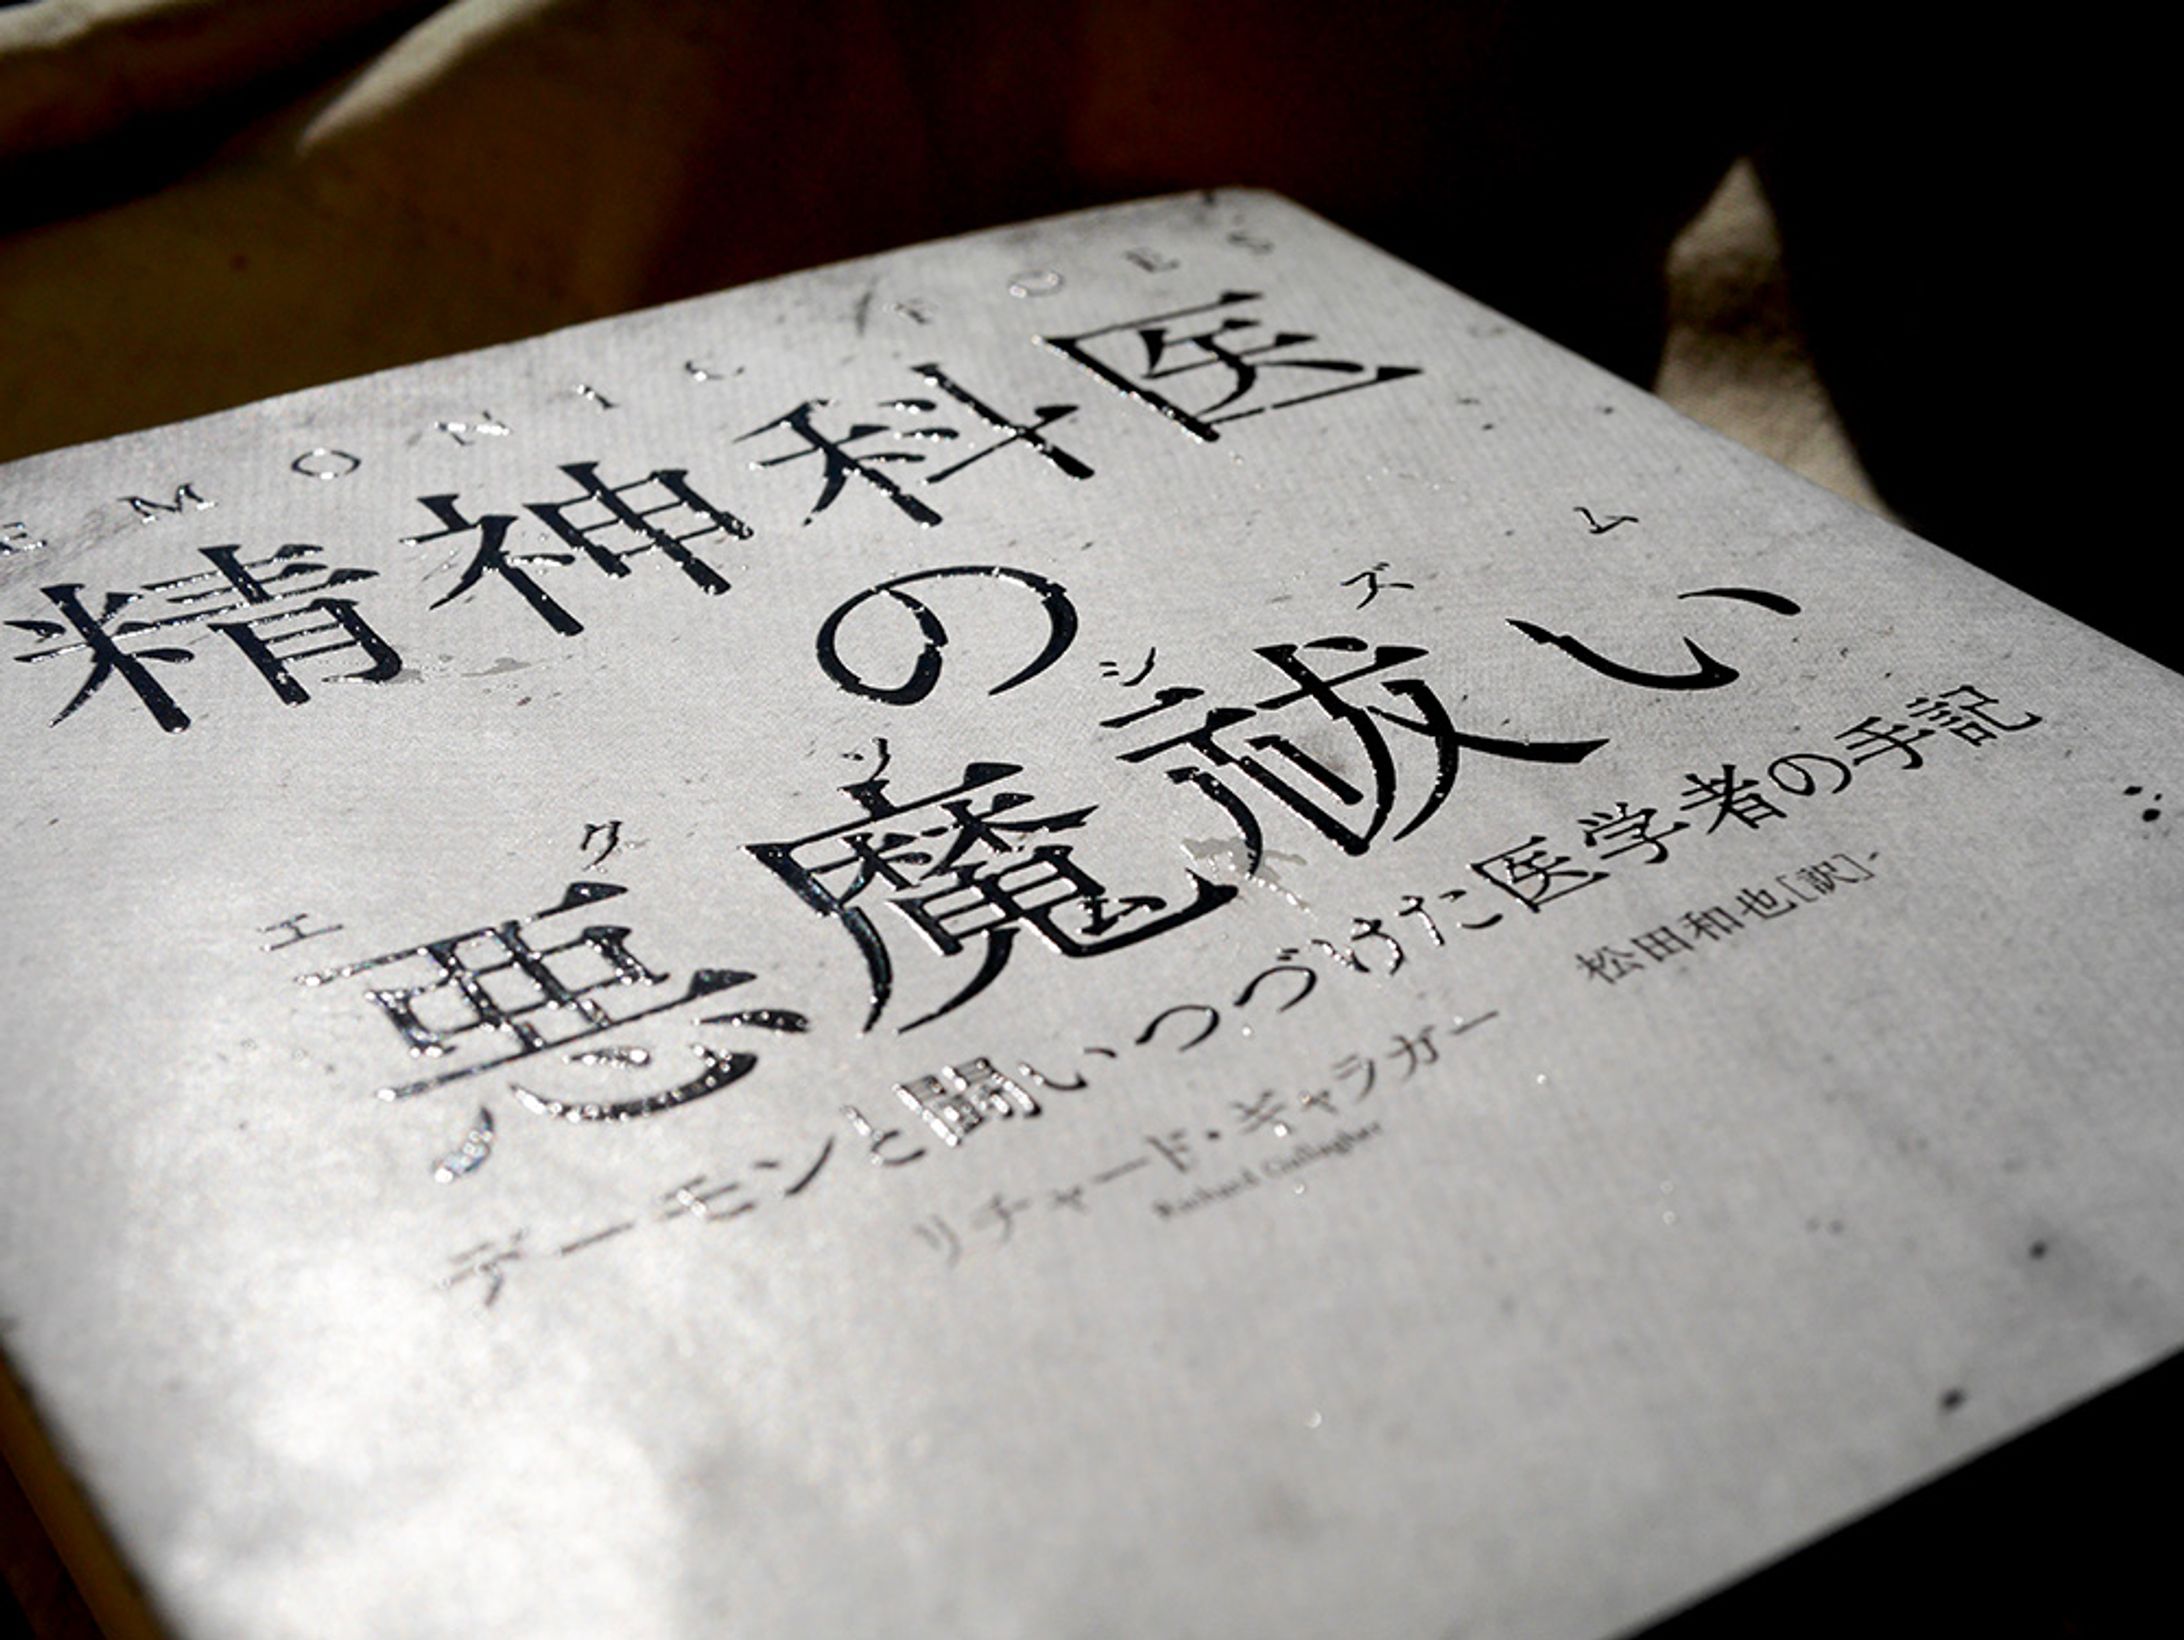 EMONIC FOES
精神科医
の
エクソシズム
悪魔祓い
デーモンと闘いつづけた医学者の手記
リチャード・ギャラガー
Richard Gallagher
松田和也[訳]